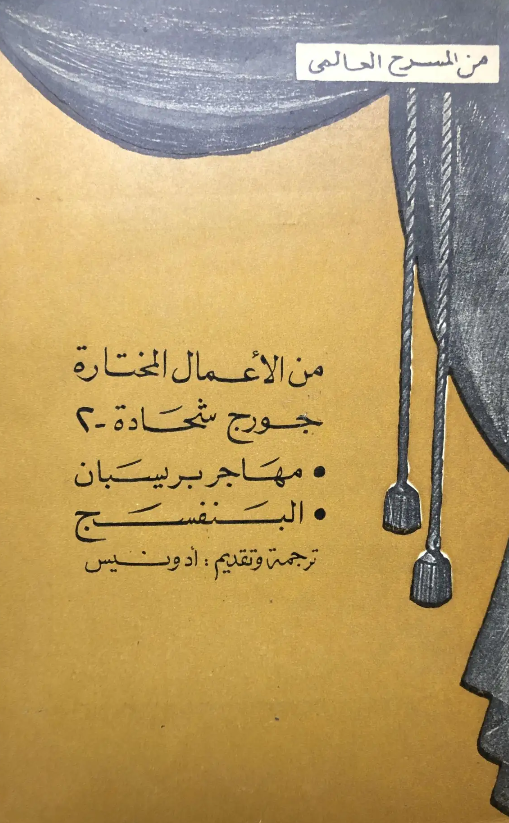 من المسرح العالمى
من الأعمال المختارة
جورج شحادة - ٢
• مهاجر بريسبان
• البنفسج
ترجمة وتقديم : أدونيس